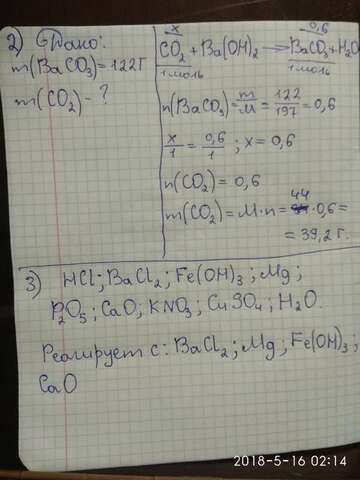 2) Дано:
m(BaCO₃)=122г
m(CO₂)-?
x 0,6
CO₂ + Ba(OH)₂ ⟶ BaCO₃ + H₂O
1моль 1моль
n(BaCO₃)= m/M = 122/197 = 0,6
x/1 = 0,6/1 ; x = 0,6
n(CO₂) = 0,6
m(CO₂) = M·n = 44 ·0,6=
= 39,2 г.
3) HCl; BaCl₂; Fe(OH)₃; Mg;
P₂O₅; CaO; KNO₃; CuSO₄; H₂O.
Реагирует с: BaCl₂; Mg; Fe(OH)₃;
CaO
2018-5-16 02:14